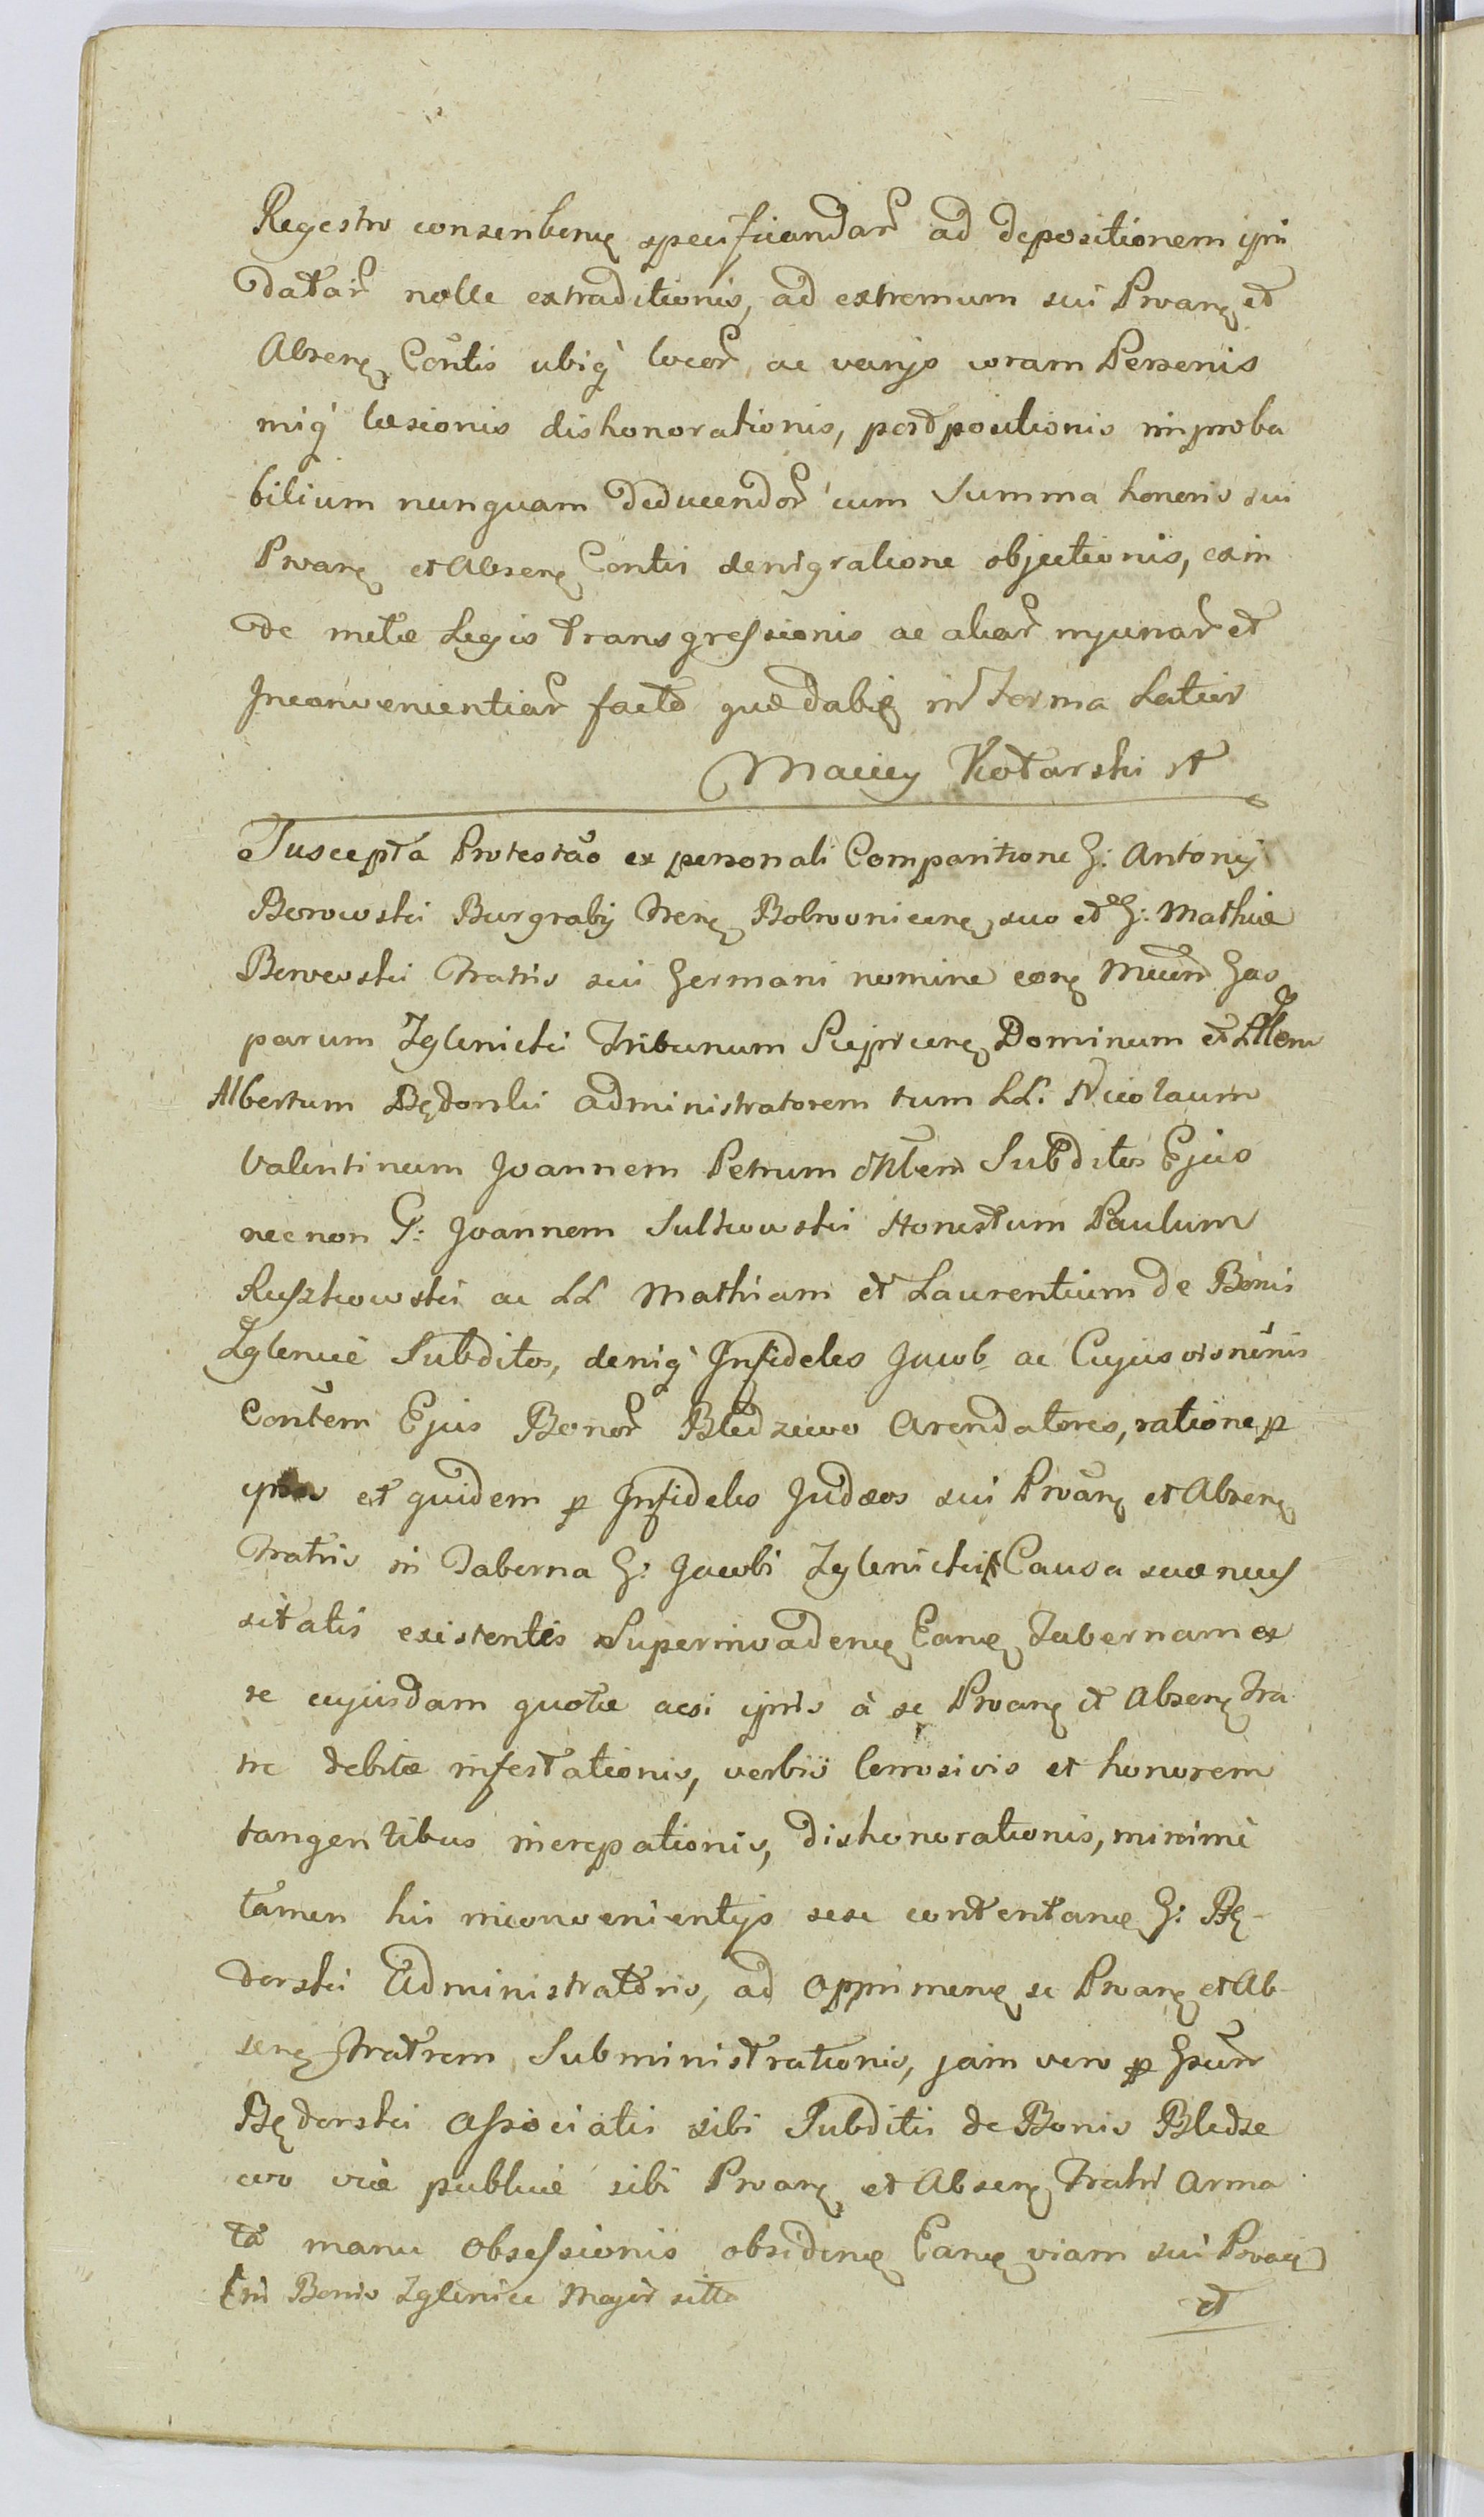 Regestro conscribeñę specificandar̃ ad depositionem ipsi
datar̃ nolle extraditionis, ad extremum sui Pñtan͠ę et
Absenę Contis ubiq̀ locor̃ ac varijs coram Personis
miq̀ læsionis dishonorationis, postpositionis improba
bilium nunquam deducendor̃ cum Summa honoris sui
Prvanę et Absenę Contis denigratione objectionis, exin
de metæ Legis transgressionis ac aliar̃ injuriar̃ et
Inconvenientiar̃ facto quæ dabię in Terma Latius
Maciey Kotarski
Suscepta Protestão ex personali Comparitione G: Antonij
Borowski Burgrabij Trenę Bobrovnicenę suo et G: Mathiæ
Borowski Fratris sui Germani nomine conę Mcum Gas
parum Zglenicki Tribunum Sieprcenę Dominum et
Albertum Będorski administratorem tum LL. Nicolaum
Valentinum Joannem Petrum Subditos Ejus
necnon G: Joannem Sulkowski Honestum Paulum
Ruszkowski ac LL Mathiam et Laurentium de Bonis
Zglenice Subditos, deniq̀ Infideles Jacob ac Cujusvisnĩnis
Contem Ejus Bonor̃ Bledzewo Arendatores, ratione p
ipsos et quidem p Infideles Judæos sui Prvanę et Absenę
Fratris in Taberna G: Jacobi Zglenicki Causa suæ neces
sitatis existentis Superinvadenę Eanę Tabernam ex
re cujusdam quotæ acsi ipsis à se Prvanę et Absenę Fra
tre debitæ infestationis, verbis corrosivis et honorem
tangentibus increpationis, dishonorationis, minimè
tamen his inconvenientijs sese contentanę G: Bę-
dorski Administratoris, ad opprimenę se Prvanę et Ab-
senę Fratrem Subministrationis, jam vero p Gsum
Będorski Associatis sibi Subditis de Bonis Bledze
wo viæ publicæ sibi Prvanę et Absenę Fratri Arma
ta manu Obsessionis obsidenę Eanę viam sui Prvanę
in Bonis Zglenice Major sitta
et